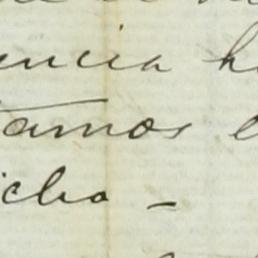 encia h
tamos e
icho -